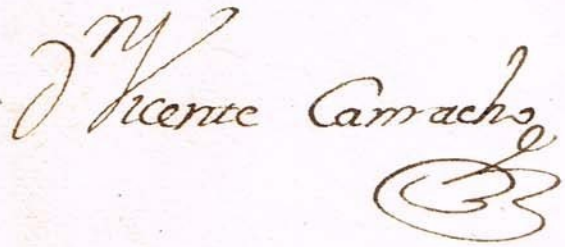 Dn Vicente Camacho